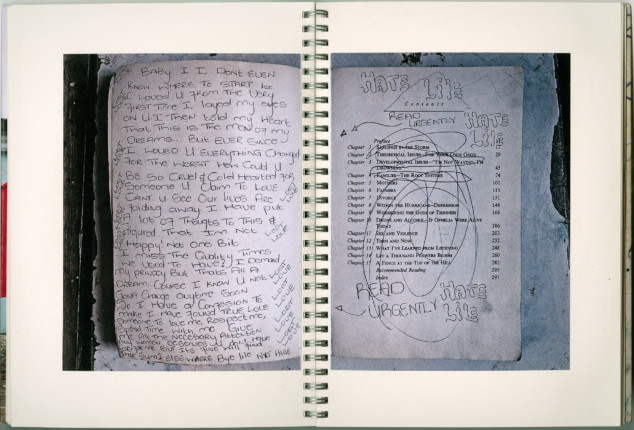 BABY I I DONT EVEN
KNOW WHERE TO START
I LOVED U FROM THE VERY
FIRST TIME I LAYED MY EYES
ON U I THEN told MY HEART
THAT THIS IS THE MAN OF MY
DREAMS... BUT EVER SINCE
I LOVED U EVERYTHING Changed
FOR THE WORST HOW COULD U
BE SO CRUEL & COLD HEARTED FOR
SOMEONE U CLAIM TO LOVE
CANT U SEE OUR LIVES ARE
FADING AWAY I HAVE PUT
A LOT OF THOUGHTS TO THIS &
FIGURED THAT I'M NOT
HAPPY! NOT ONE BIT
I MISS THE QUALITY TIMES
WE USED TO HAVE I
MY PRIVACY BUT THATS ALL A
DREAM COURSE I KNOW U
CHANGE ANYTIME SOON
SO I HAVE A CONFESION TO
MAKE I HAVE FOUND TRUE LOVE
SOMEONE TO LOVE ME, RESPECT ME,
SPEND TIME WITH ME GIVE
ME THE NECESSARY ATTENTION
ELSE WHERE BYE
LOST
LOVE
LOST
LOVE
HATE LIFE
Contents
READ
URGENTLY
HATE
LIFE
Preface
Chapter 1 SAPLINGS IN THE STORM 17
Chapter 2 THEORETICAL ISSUES—FOR YOUR OWN GOOD 29
Chapter 3 DEVELOPMENTAL ISSUES—"I'M NOT WAVING, I'M
DROWNING" 45
Chapter 4 FAMILIES—THE ROOT SYSTEMS 74
Chapter 5 MOTHERS 101
Chapter 6 FATHERS 115
Chapter 7 DIVORCE 131
Chapter 8 WITHIN THE HURRICANE—DEPRESSION 146
Chapter 9 WORSHIPING THE GODS OF THINNESS 166
Chapter 10 DRUGS AND ALCOHOL—IF OPHELIA WERE ALIVE
TODAY 186
Chapter 11 SEX AND VIOLENCE 203
Chapter 12 THEN AND NOW 232
Chapter 13 WHAT I'VE LEARNED FROM LISTENING 248
Chapter 14 LET A THOUSAND FLOWERS BLOOM 260
Chapter 15 A FENCE AT THE TOP OF THE HILL 282
Recommended Reading 295
Index 297
READ
URGENTLY
HATE
LIFE